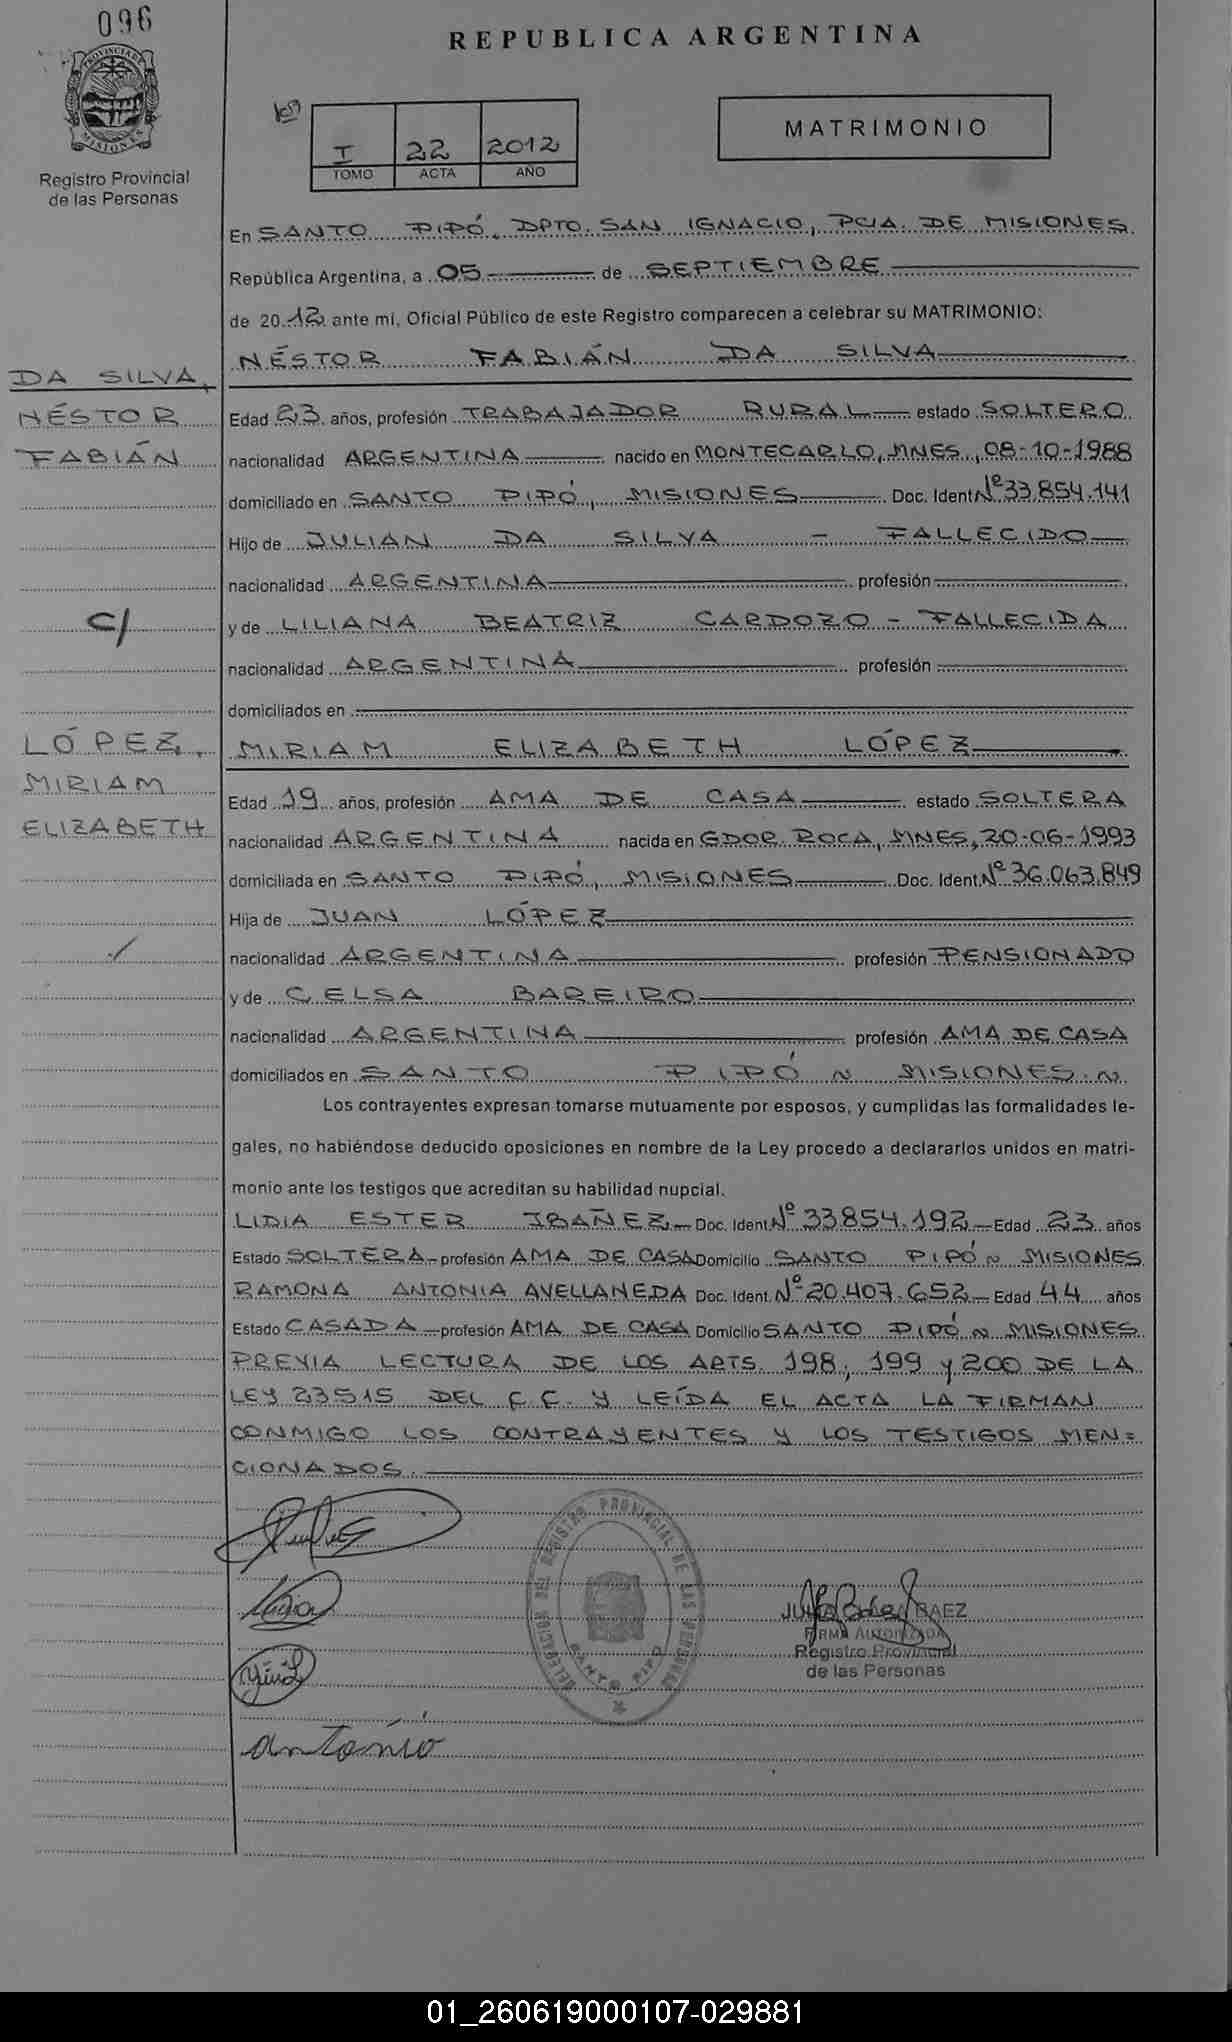 096
PROVINCIA DE
MISIONES
Registro Provincial
de las Personas
REPUBLICA ARGENTINA
I 22 2012
TOMO ACTA AÑO
MATRIMONIO
En SANTO PIPÓ, DPTO. SAN IGNACIO, PCIA. DE MISIONES
República Argentina, a 05 de SEPTIEMBRE
de 2012 ante mi, Oficial Público de este Registro comparecen a celebrar su MATRIMONIO:
NÉSTOR FABIÁN DA SILVA
DA SILVA,
NÉSTOR
FABIÁN
C/
LÓPEZ,
MIRIAM
ELIZABETH
Edad 23 años, profesión TRABAJADOR RURAL estado SOLTERO
nacionalidad ARGENTINA nacido en MONTECARLO, MNES, 08-10-1988
domiciliado en SANTO PIPÓ, MISIONES Doc. Ident Nº 33.854.141
Hijo de JULIAN DA SILVA - FALLECIDO
nacionalidad ARGENTINA profesión
y de LILIANA BEATRIZ CARDOZO - FALLECIDA
nacionalidad ARGENTINA profesión
domiciliados en
MIRIAM ELIZABETH LÓPEZ
Edad 19 años, profesión AMA DE CASA estado SOLTERA
nacionalidad ARGENTINA nacida en GDOR. ROCA, MNES, 20-06-1993
domiciliada en SANTO PIPÓ, MISIONES Doc. Ident Nº 36.063.849
Hija de JUAN LÓPEZ
nacionalidad ARGENTINA profesión PENSIONADO
y de CELSA BAREIRO
nacionalidad ARGENTINA profesión AMA DE CASA
domiciliados en SANTO PIPÓ ~ MISIONES.~
Los contrayentes expresan tomarse mutuamente por esposos, y cumplidas las formalidades le-
gales, no habiéndose deducido oposiciones en nombre de la Ley procedo a declararlos unidos en matri-
monio ante los testigos que acreditan su habilidad nupcial.
LIDIA ESTER IBAÑEZ Doc. Ident Nº 33854.192 Edad 23 años
Estado SOLTERA profesión AMA DE CASA Domicilio SANTO PIPÓ ~ MISIONES
RAMONA ANTONIA AVELLANEDA Doc. Ident. Nº 20.407.652 Edad 44 años
Estado CASADA profesión AMA DE CASA Domicilio SANTO PIPÓ ~ MISIONES
PREVIA LECTURA DE LOS ARTS. 198, 199 y 200 DE LA
LEY 23515 DEL C.C. Y LEÍDA EL ACTA LA FIRMAN
CONMIGO LOS CONTRAYENTES Y LOS TESTIGOS MEN=
CIONADOS.
DELEGACION DEL REGISTRO PROVINCIAL DE LAS PERSONAS
SANTO PIPO
BAEZ
FIRMA AUTORIZADA
Registro Provincial
de las Personas
antonio
01_260619000107-029881